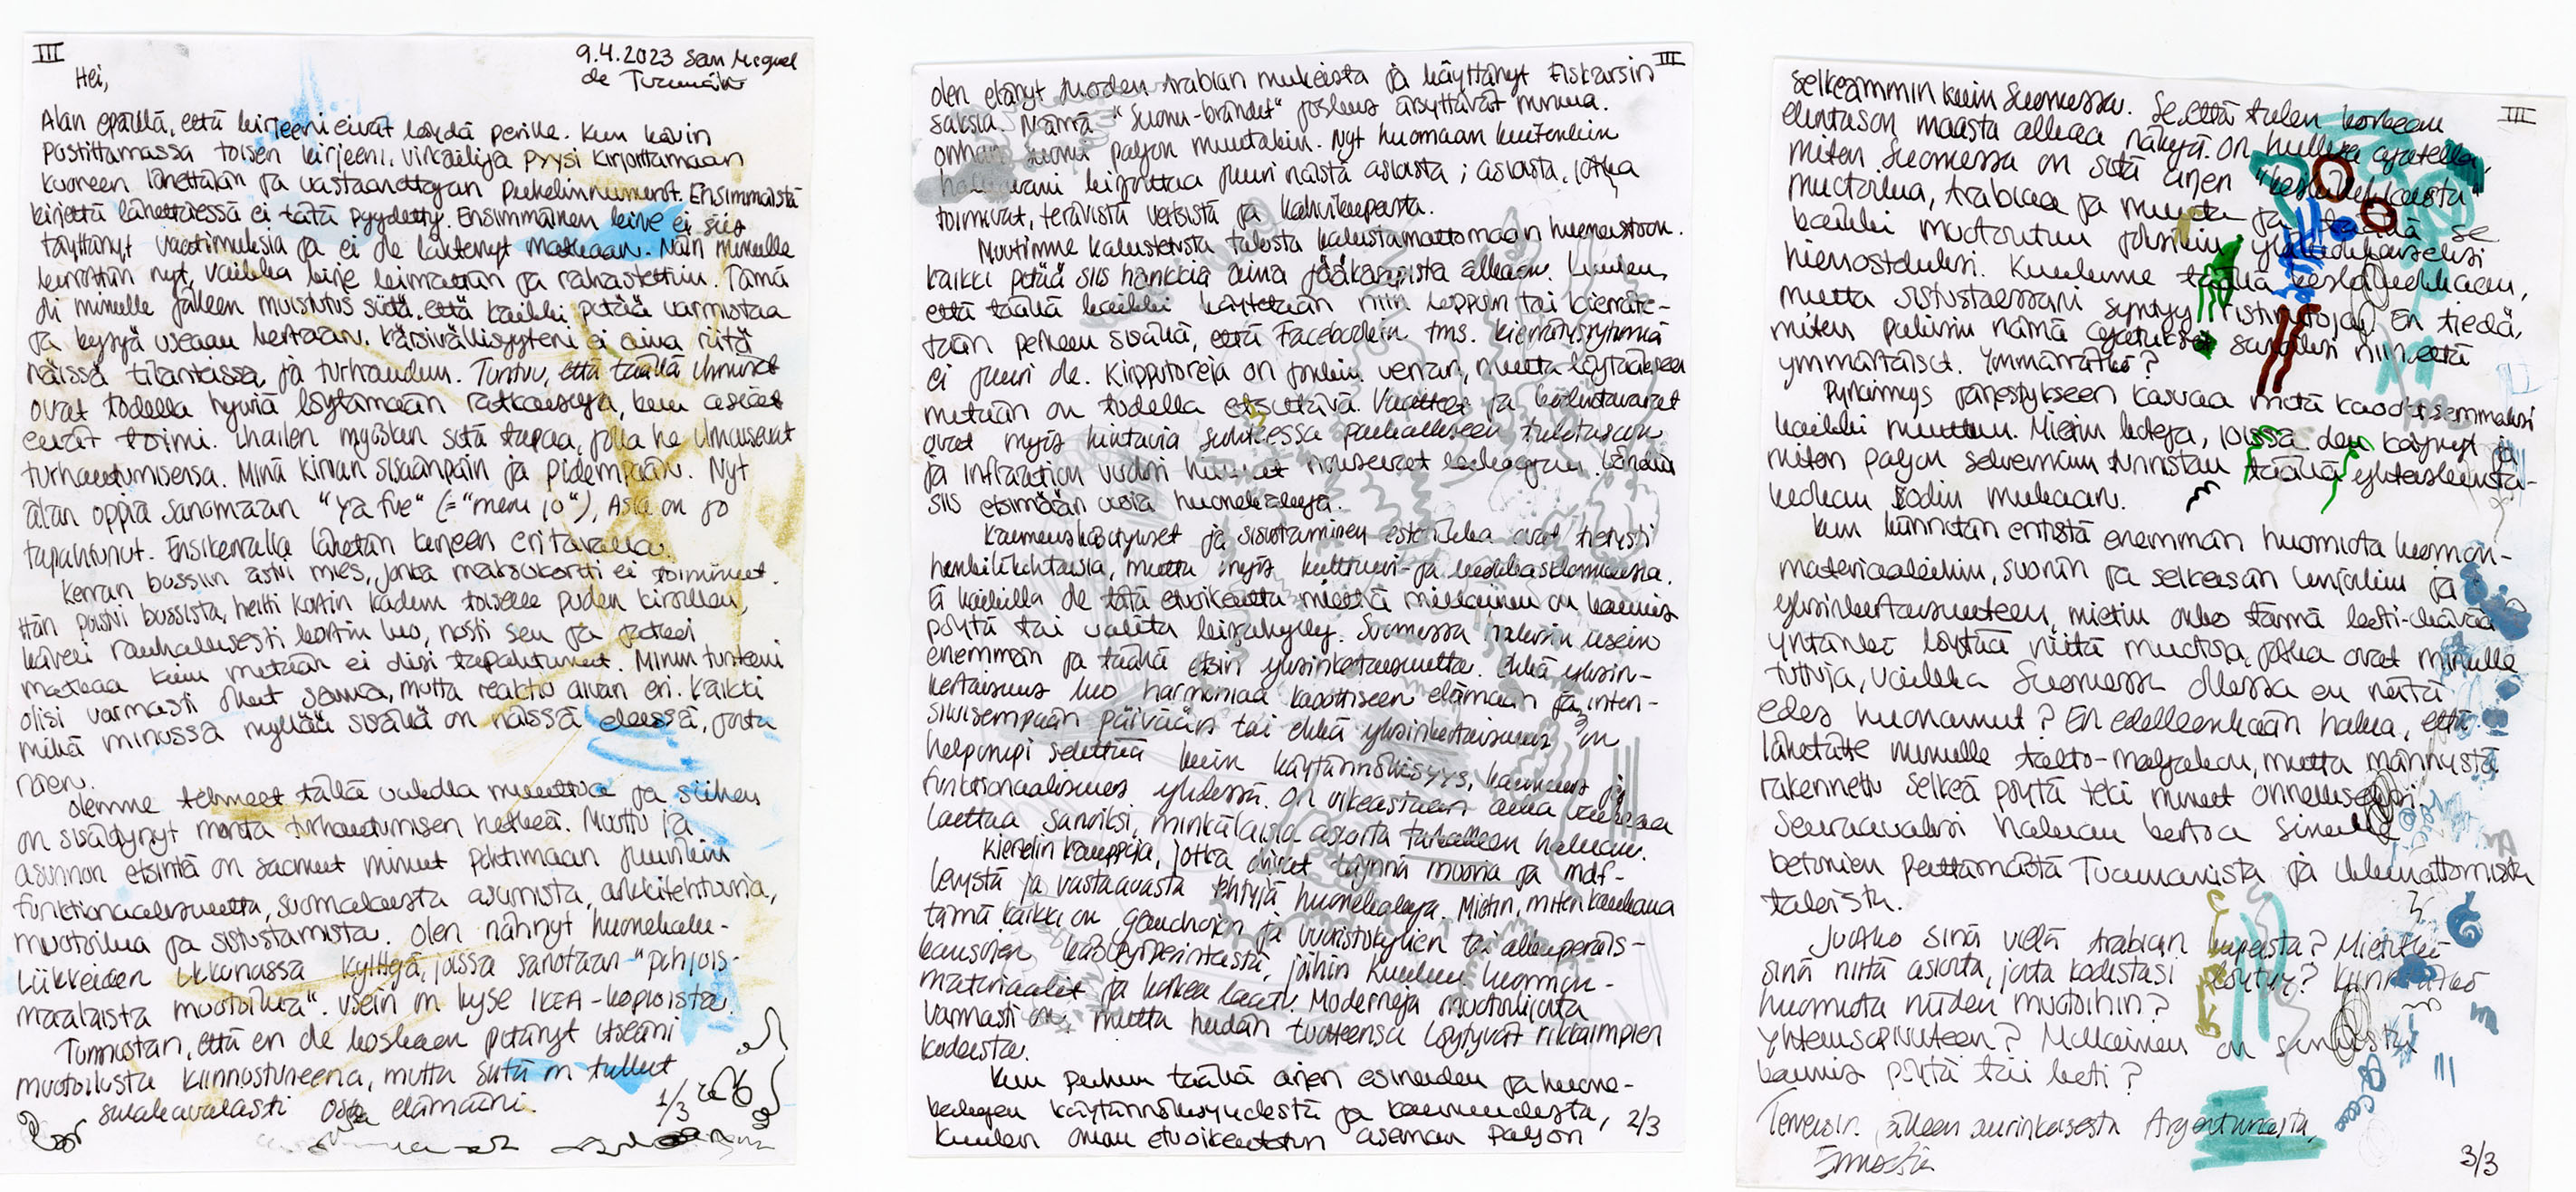 III
9.4.2023 San Miguel
de Tucumán
Hei,
Alan epäillä, että kirjeeni eivät löydä perille. Kun kävin
postittamassa toisen kirjeeni, virkailija pyysi kirjoittamaan
kuoreen lähettäjän ja vastaanottajan puhelinnumerot. Ensimmäistä
kirjettä lähettäessä ei tätä pyydetty. Ensimmäinen kirje ei siis
täyttänyt vaatimuksia ja ei ole lähtenyt matkaan. Näin minulle
kerrottiin nyt, vaikka kirje leimattiin ja rahastettiin. Tämä
oli minulle jälleen muistutus siitä, että kaikki pitää varmistaa
ja kysyä useaan kertaan. Kärsivällisyyteni ei aina riitä
näissä tilanteissa, ja turhaudun. Tuntuu, että täällä ihmiset
ovat todella hyviä löytämään ratkaisuja, kun asiat
eivät toimi. Ihailen myöskin sitä tapaa, jolla he ilmaisevat
turhautumisensa. Minä kiroan sisäänpäin ja pidempään. Nyt
alan oppia sanomaan "Ya fue" (="meni jo"), Asia on jo
tapahtunut. Ensikerralla lähetän kirjeen eri tavalla.
Kerran bussiin astui mies, jonka maksukortti ei toiminut.
Hän poistui bussista, heitti kortin kadun toiselle puolen kiroillen,
käveli rauhallisesti kortin luo, nosti sen ja jatkoi
matkaa kuin mitään ei olisi tapahtunut. Minun tunteeni
olisi varmasti ollut sama, mutta reaktio aivan eri. Kaikki
mikä minussa myllää sisällä on näissä eleissä, joita
näen.
Olemme tehneet tällä viikolla muuttoa ja siihen
on sisältynyt monta turhautumisen hetkeä. Muutto ja
asunnon etsintä on saanut minut pohtimaan puunkin
funktionaalisuutta, suomalaista asumista, arkkitehtuuria,
muotoilua ja sisustamista. Olen nähnyt huonekalu-
liikkeiden ikkunassa kylttejä, joissa sanotaan "pohjois-
maalaista muotoilua". Usein on kyse IKEA-kopioista.
Tunnustan, että en ole koskaan pitänyt itseäni
muotoilusta kiinnostuneena, mutta siitä on tullut
salakavalasti osa elämääni.
1/3
III
olen etänyt juoden Arabian mukeista ja käyttänyt Fiskarsin
saksia. Nämä "Suomi-brändit" joskus ärsyttävät minua.
onhan Suomi paljon muutakin. Nyt huomaan kuitenkin
haluavani kirjoittaa juuri näistä asioista; asioista, jotka
toimivat, terävistä veitsistä ja kahvikupeista.
Muutimme kalustetusta talosta kalustamattomaan huoneistoon.
Kaikki pitää siis hankkia aina jääkaapista alkaen. Luulen,
että täällä kaikki käytetään niin loppuun tai kierräte-
tään perheen sisällä, että Facebookin tms. kierrätysryhmiä
ei juuri ole. Kirpputoreja on jonkin verran, mutta löytääkseen
mitään on todella etsittävä. Vaatteet ja kodintavarat
ovat myös hintavia suhteessa paikalliseen tulotasoon
ja inflaation vuoksi hinnat nousevat koko ajan. Lähdin
siis etsimään uusia huonekaluja.
Kauneuskäsitykset ja sisustamisen estetiikka ovat tietysti
henkilökohtaisia, mutta myös kulttuuri- ja luokkasidonnaisia.
Ei kaikilla ole tätä etuoikeutta miettiä millainen on kaunis
pöytä tai valita kirjahylly. Suomessa halusin usein
enemmän ja täällä etsin yksinkertaisuutta. Ehkä yksin-
kertaisuus luo harmoniaa kaoottiseen elämään ja inten-
siivisempään päivään tai ehkä yksinkertaisuus on
helpompi selittää kuin käytännöllisyys, kauneus ja
funktionaalisuus yhdessä. On oikeastaan aina vaikeaa
laittaa sanoiksi, minkälaisia asioita tarkalleen haluan.
Kiertelin kauppoja, jotka olivat täynnä muovia ja mdf-
levystä ja vastaavasta tehtyjä huonekaluja. Mietin, miten kaukana
tämä kaikki on gauchojen ja vuoristokylien tai alkuperäis-
kansojen käsityöperinteistä, joihin kuuluu luonnon-
materiaalit ja korkea laatu. Moderneja muotoilijoita
varmasti on, mutta heidän tuotteensa löytyvät rikkaimpien
kodeista.
Kun puhun täällä arjen esineiden ja huone-
kalujen käytännöllisyydestä ja kauneudesta,
kuulen oman etuoikeutetun aseman paljon
2/3
III
selkeämmin kuin Suomessa. Se että tulen korkean
elintason maasta alkaa näkyä. On hullua ajatella,
miten Suomessa on sitä arjen "keskiluokkaista"
muotoilua, Arabiaa ja muuta ja täällä se
kaikki muotoutuu johonkin yläluokkaiseksi
hienosteluksi. Kuulumme täällä keskiluokkaan,
mutta sisustaessani syntyy ristiriitoja. En tiedä,
miten pukisin nämä ajatukset sanoiksi niin että
ymmärtäisit. Ymmärrätkö?
Pyrkimys järjestykseen kasvaa mitä kaoottisemmaksi
kaikki muuttuu. Mietin koteja, joissa olen käynyt ja
miten paljon selvemmin tunnistan täällä yhteiskunta-
luokan kodin mukaan.
Kun kiinnitän entistä enemmän huomiota luonnon-
materiaaleihin, suoriin ja selkeisiin linjoihin ja
yksinkertaisuuteen, mietin onko tämä koti-ikävää
yritänkö löytää niitä muotoja, jotka ovat minulle
tuttuja, vaikka Suomessa ollessa en niitä
edes huomannut? En edelleenkään halua, että
lähetätte minulle Aalto-maljakon, mutta männystä
rakennettu selkeä pöytä teki minut onnelliseksi.
Seuraavaksi haluan kertoa sinulle
betonien peittämästä Tucumanista ja ikkunattomista
taloista.
Juotko sinä vielä Arabian kupeista? Mietitkö
sinä niitä asioita, joita kodistasi löytyy? Kiinnitätkö
huomiota niiden muotoihin?
Yhteensopivuuteen? Millainen on sinusta
kaunis pöytä tai koti?
Terveisin, jälleen aurinkoisesta Argentiinasta,
3/3